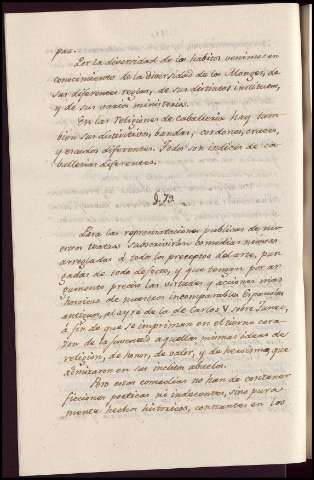 paz.
Por la diversidad de los habitos venimos en
conocimiento de la diversidad de los Monges, de
sus diferentes reglas, de sus distintos institutos,
y de sus varios ministerios.
En las religiones de caballeria hay tam-
bien sus distintivos, bandas, cordones, cruces,
y escudos diferentes. Todo son indicios de ca-
ballerias diferentes.
§. 73.
Para las representaciones publicas de nu-
estros teatros subscriviran comedias nuevas
arregladas á todos los preceptos del arte, pur-
gadas de todo defecto, y que tengan por ar-
gumento preciso las virtudes, y acciones mas
heroicas de nuestros incomparables Españoles
antiguos, al ayre de la de Carlos V. sobre Tunez,
á fin de que se impriman en el tierno cora-
zon de la juventud aquellas mismas ideas de
religion, de honor, de valor, y de heroismo, que
admiraron en sus inclitos abuelos.
Pero estas comedias no han de contener
ficciones poeticas no indecentes, sino pura
mente hechos historicos, constantes en las